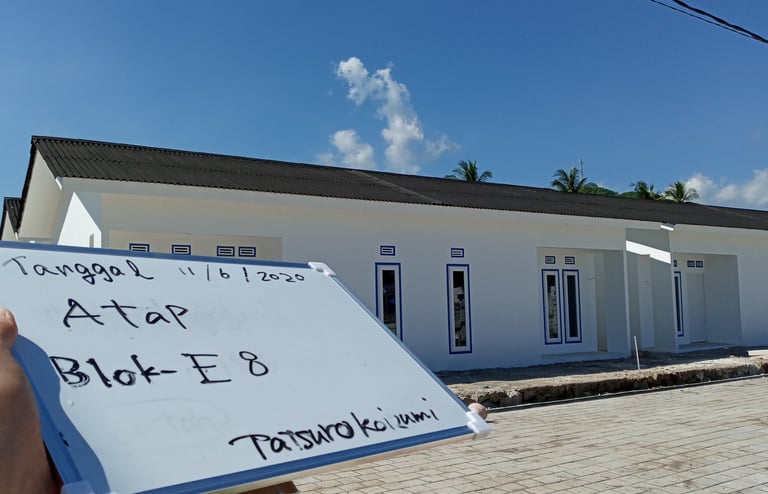 Tanggal 11/6/2020
Atap
Blok-E 8
Tatsuro Koizumi